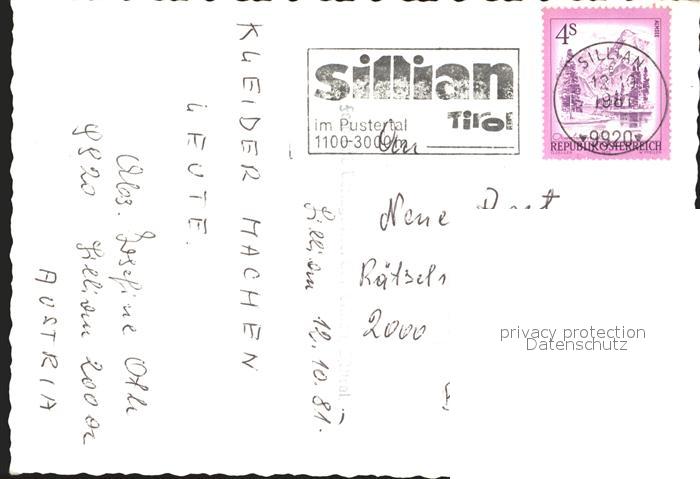 KLEIDER MACHEN
LEUTE.
Abs. Josefine
9920 Sillian 200
AUSTRIA
Sillian 12.10.81.
sillian
Tirol
im Pustertal
1100-3000
An
Neue Post
Rätsel
2000
4s
ALMSEE
REPUBLIK ÖSTERREICH
SILLIAN
1981
9920
privacy protection
Datenschutz